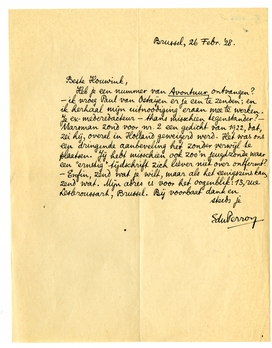 Brussel, 26 Febr. '28.
Beste Houwink,
Heb je een nummer van Avontuur ontvangen?
– ik vroeg Paul van Ostaijen er je een te zenden; en
ik herhaal mijn uitnoodiging eraan mee te werken.
Je ex-mederedacteur – thans misschien tegenstander? –
Marsman zond voor nr. 2 een gedicht van 1922, dat,
zei hij, overal in Holland geweigerd werd. Het was een
dringende aanbeveling het zonder verwijl te
plaatsen. Jij hebt misschien ook zoo'n jeugdzonde waar
een "ernstig" tijdschrift zich liever niet over ontfermt?
– Enfin, zend wat je wilt, maar als het eenigszins kan,
zend wat. Mijn adres is voor het oogenblik: 13, rue
Desbroussart, Brussel. Bij voorbaat dank en
steeds je
EduPerron